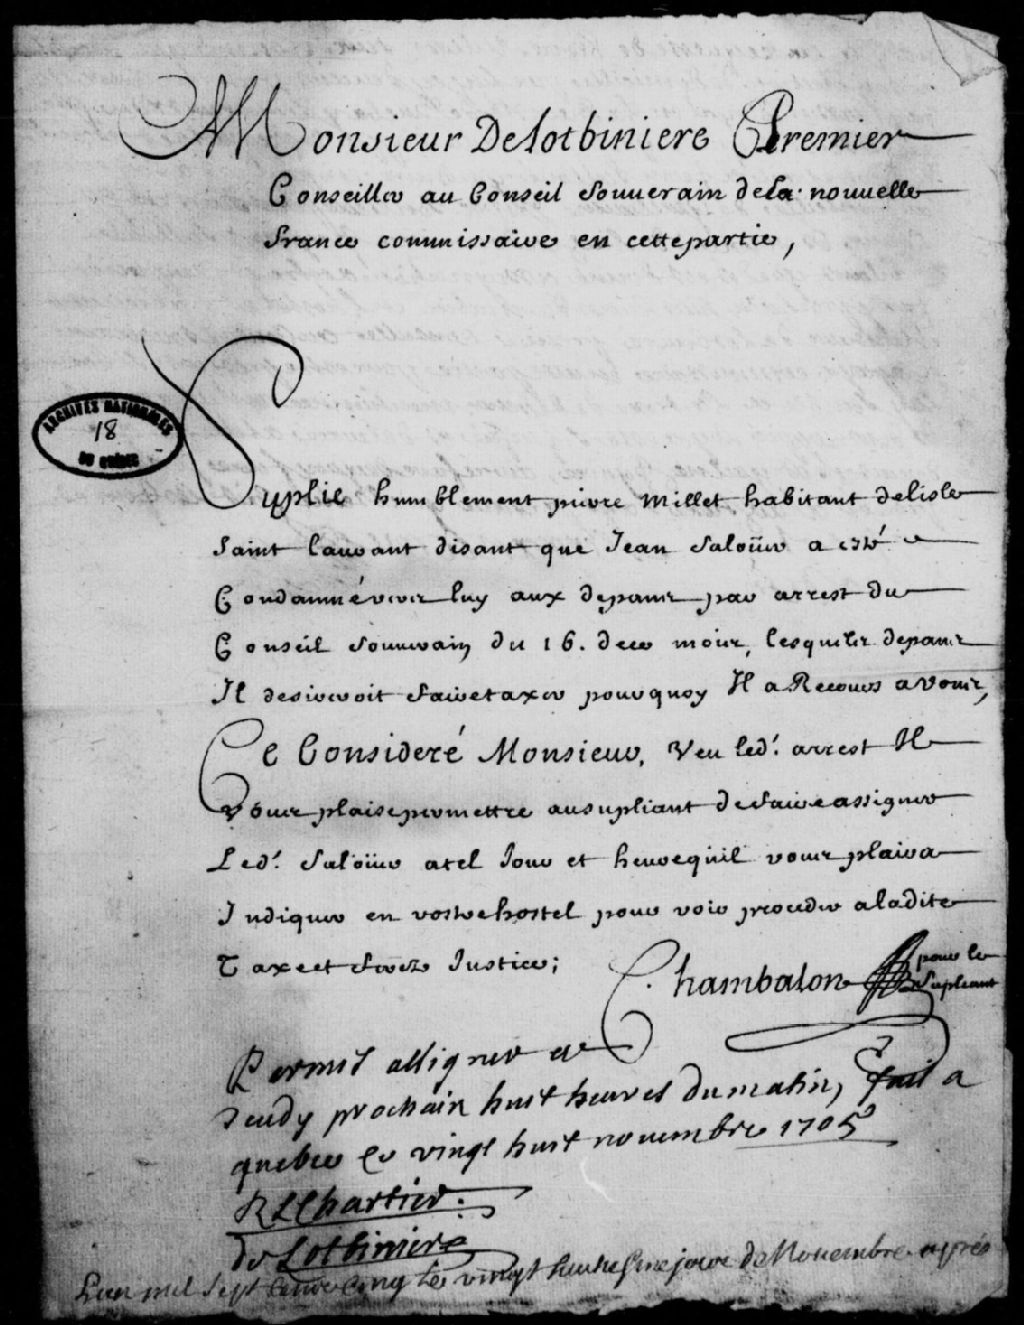 Monsieur Delotbiniere Premier
Conseiller au Conseil Souuerain dela nouuelle
france commissaire en cette partie,
ARCHIVES NATIONALES
18
DU QUÉBEC
Suplie humblement pierre Millet habitant delisle
Saint laurant disant que Jean Saloüer a esté
Condamné vers luy aux depans par arrest du
Conseil Souuerain du 16. de ce mois, lesquels depans
Il desireroit faire taxer pourquoy Il a Recours a vous,
Ce Consideré Monsieur, Veu led. arrest Il
vous plaise permettre au supliant de faire assigner
Led. Saloüer a tel Jour et heure quil vous plaira
Indiquer en vostre hostel pour voir proceder a ladite
Taxe et ferez Justice;
Chambalon pour le
Supliant
Permis assigner a
Jeudy prochain huit heures du matin, fait a
quebec le vingt huit nouembre 1705
RLChartier
de Lotbiniere
Lan mil Sept Cent Cinq le vingt huitiesme jour de Nouembre apres